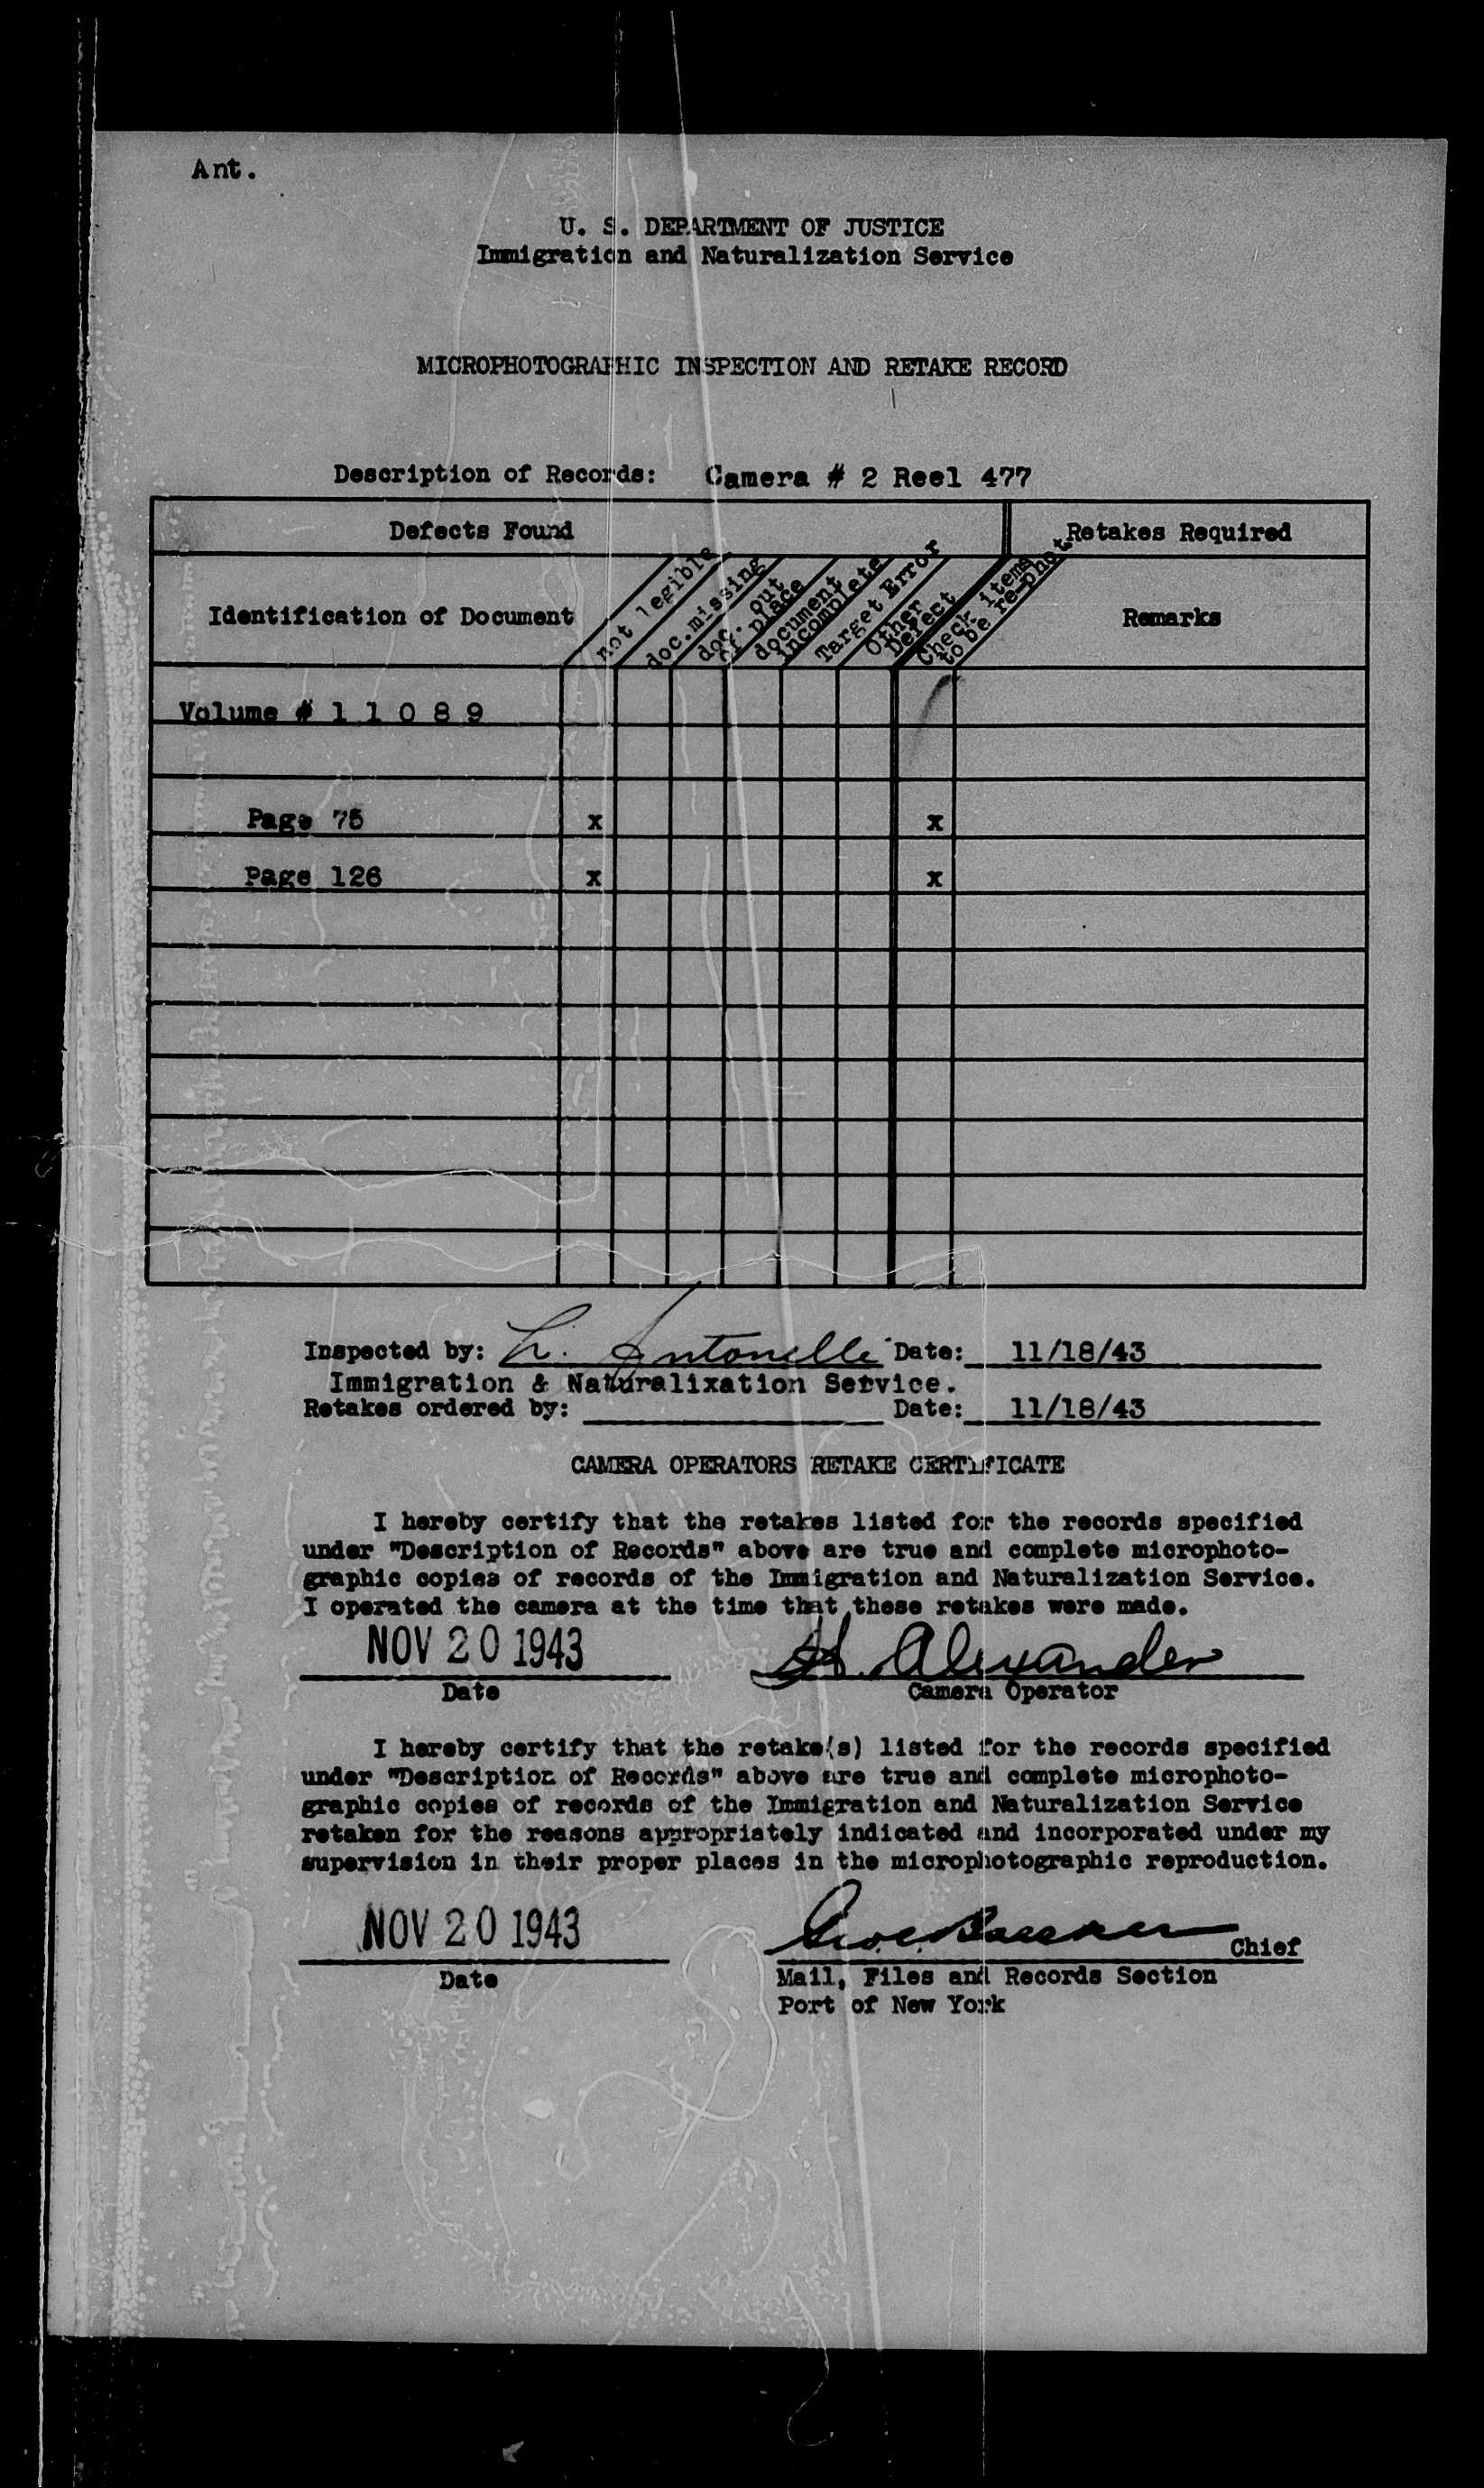 Ant.
U. S. DEPARTMENT OF JUSTICE
Immigration and Naturalization Service
MICROPHOTOGRAPHIC INSPECTION AND RETAKE RECORD
Description of Records: Camera # 2 Reel 477
Defects Found
Retakes Required
Identification of Document
not legible
doc.missing
doc. out
of place
document
incomplete
Target Error
Other
Defect
Check items
to be re-phot
Remarks
Volume # 1 1 0 8 9
Page 75 x x
Page 126 x x
Inspected by: L. Antonelle Date: 11/18/43
Immigration & Naturalixation Service.
Retakes ordered by: Date: 11/18/43
CAMERA OPERATORS RETAKE CERTIFICATE
I hereby certify that the retakes listed for the records specified
under "Description of Records" above are true and complete microphoto-
graphic copies of records of the Immigration and Naturalization Service.
I operated the camera at the time that these retakes were made.
NOV 20 1943 H. Alexander
Date Camera Operator
I hereby certify that the retake(s) listed for the records specified
under "Description of Records" above are true and complete microphoto-
graphic copies of records of the Immigration and Naturalization Service
retaken for the reasons appropriately indicated and incorporated under my
supervision in their proper places in the microphotographic reproduction.
NOV 20 1943 Chief
Date Mail, Files and Records Section
Port of New York